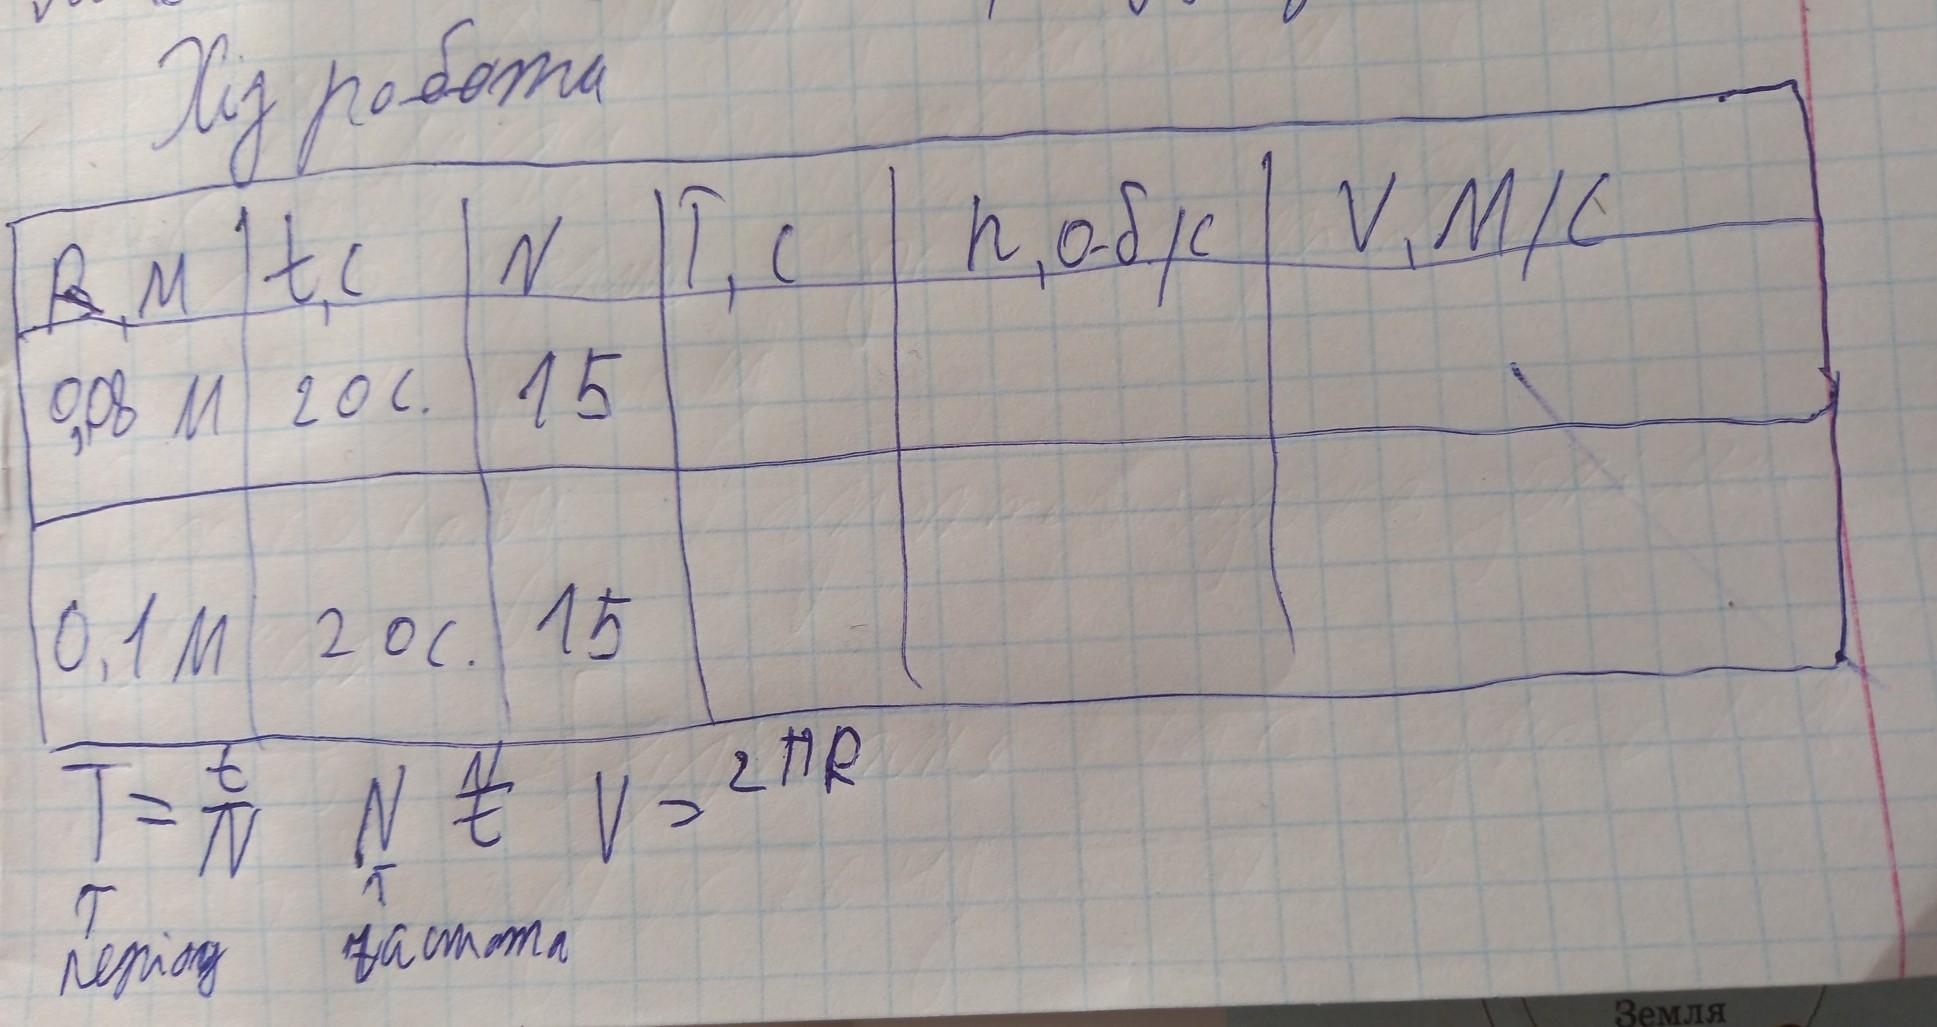 Хід робота
R, м t, c N T, c n, об/с V, М/С
0,08 м 20 с. 15
0,1 м 20 с. 15
T = t/N N N/t V = 2ПR
період частота
Земля